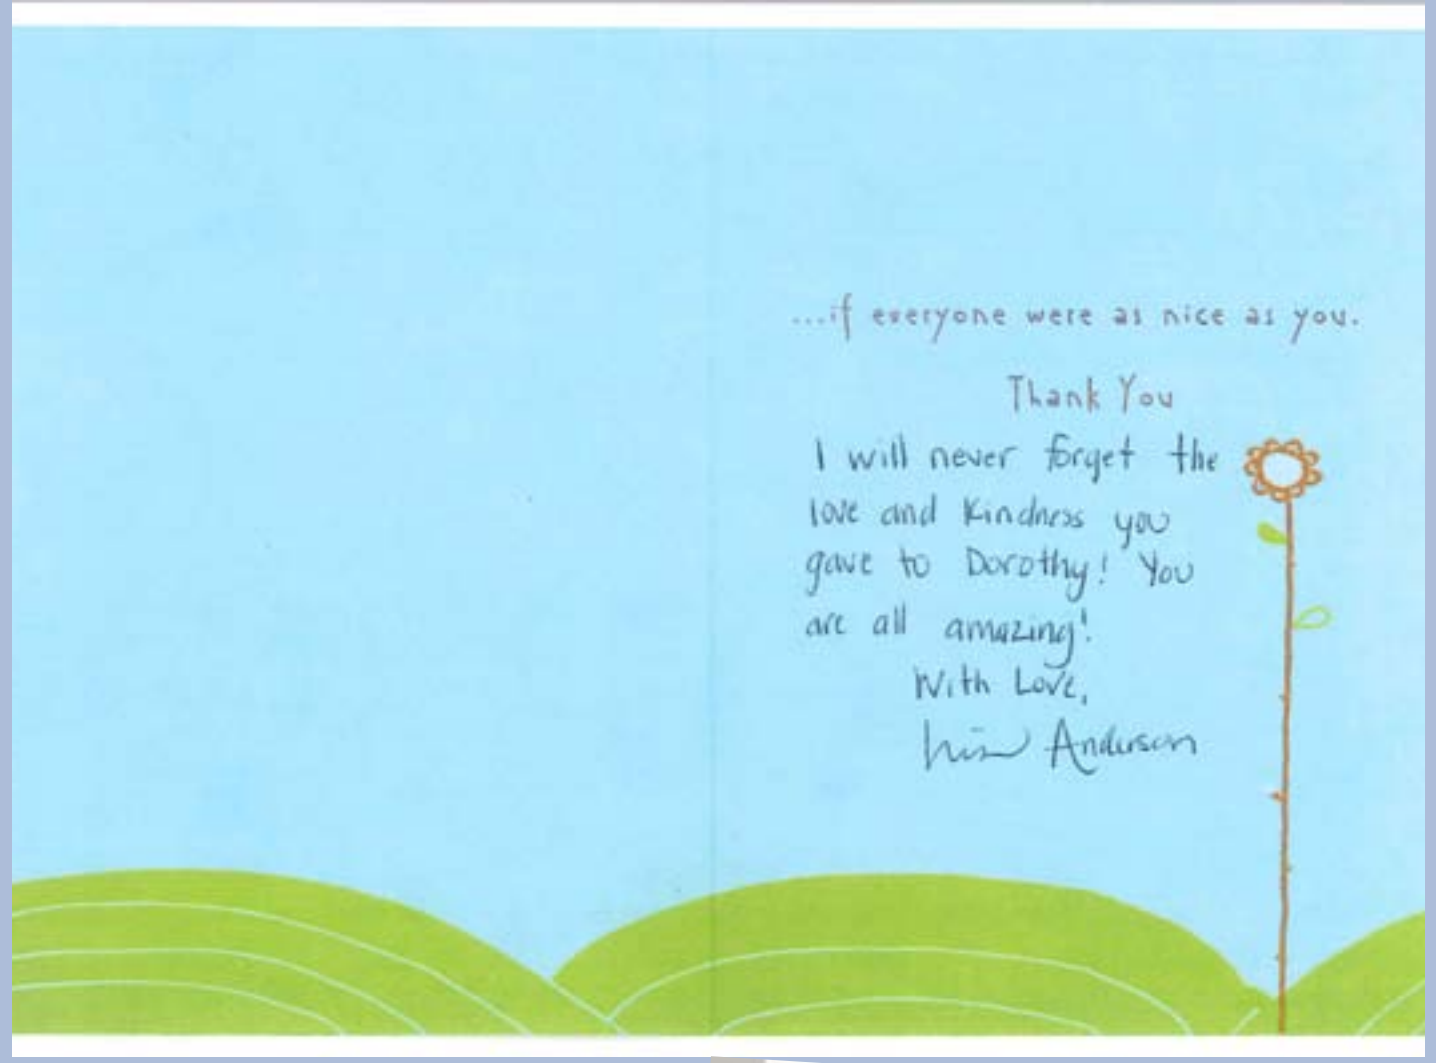 ...if everyone were as nice as you.
Thank You
I will never forget the
love and kindness you
gave to Dorothy! You
are all amazing!
With Love,
Anderson